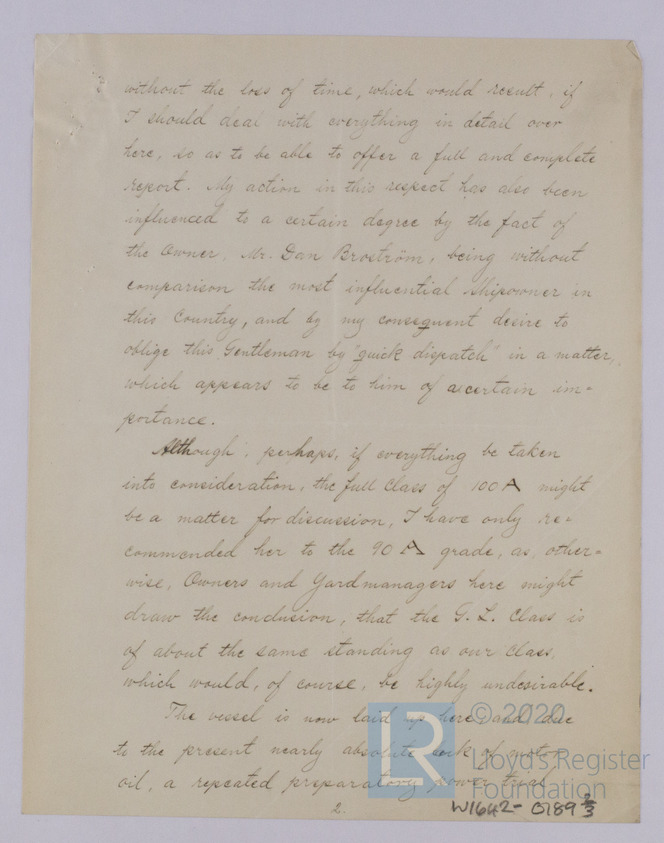 without the loss of time, which would result, if
I should deal with everything in detail over
here, so as to be able to offer a full and complete
report. My action in this respect has also been
influenced to a certain degree by the fact of
the Owner, Mr. Dan Broström, being without
comparison the most influential Shipowner in
this Country, and by my consequent desire to
oblige this Gentleman by "quick dispatch" in a matter,
which appears to be to him of a certain im=
portance.
Although, perhaps, if everything be taken
into consideration, the full Class of 100A might
be a matter for discussion, I have only re=
commended her to the 90 A grade, as, other=
wise, Owners and Yardmanagers here might
draw the conclusion, that the G. L. Class is
of about the same standing as our Class,
which would, of course, be highly undesirable.
The vessel is now laid up here, and due
to the present nearly absolute lack of motor
oil, a repeated preparatory power trial
2.
© 2020
LR
Lloyd's Register
Foundation
W1642-0189 2/3